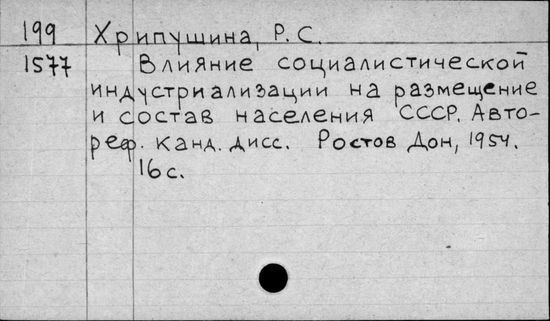 199 Хрипушина, Р. С.
1577 Влияние социалистической
индустриализации на размещение
и состав населения СССР. Авто-
реф. канд. дисс. Ростов Дон, 1954.
16 с.